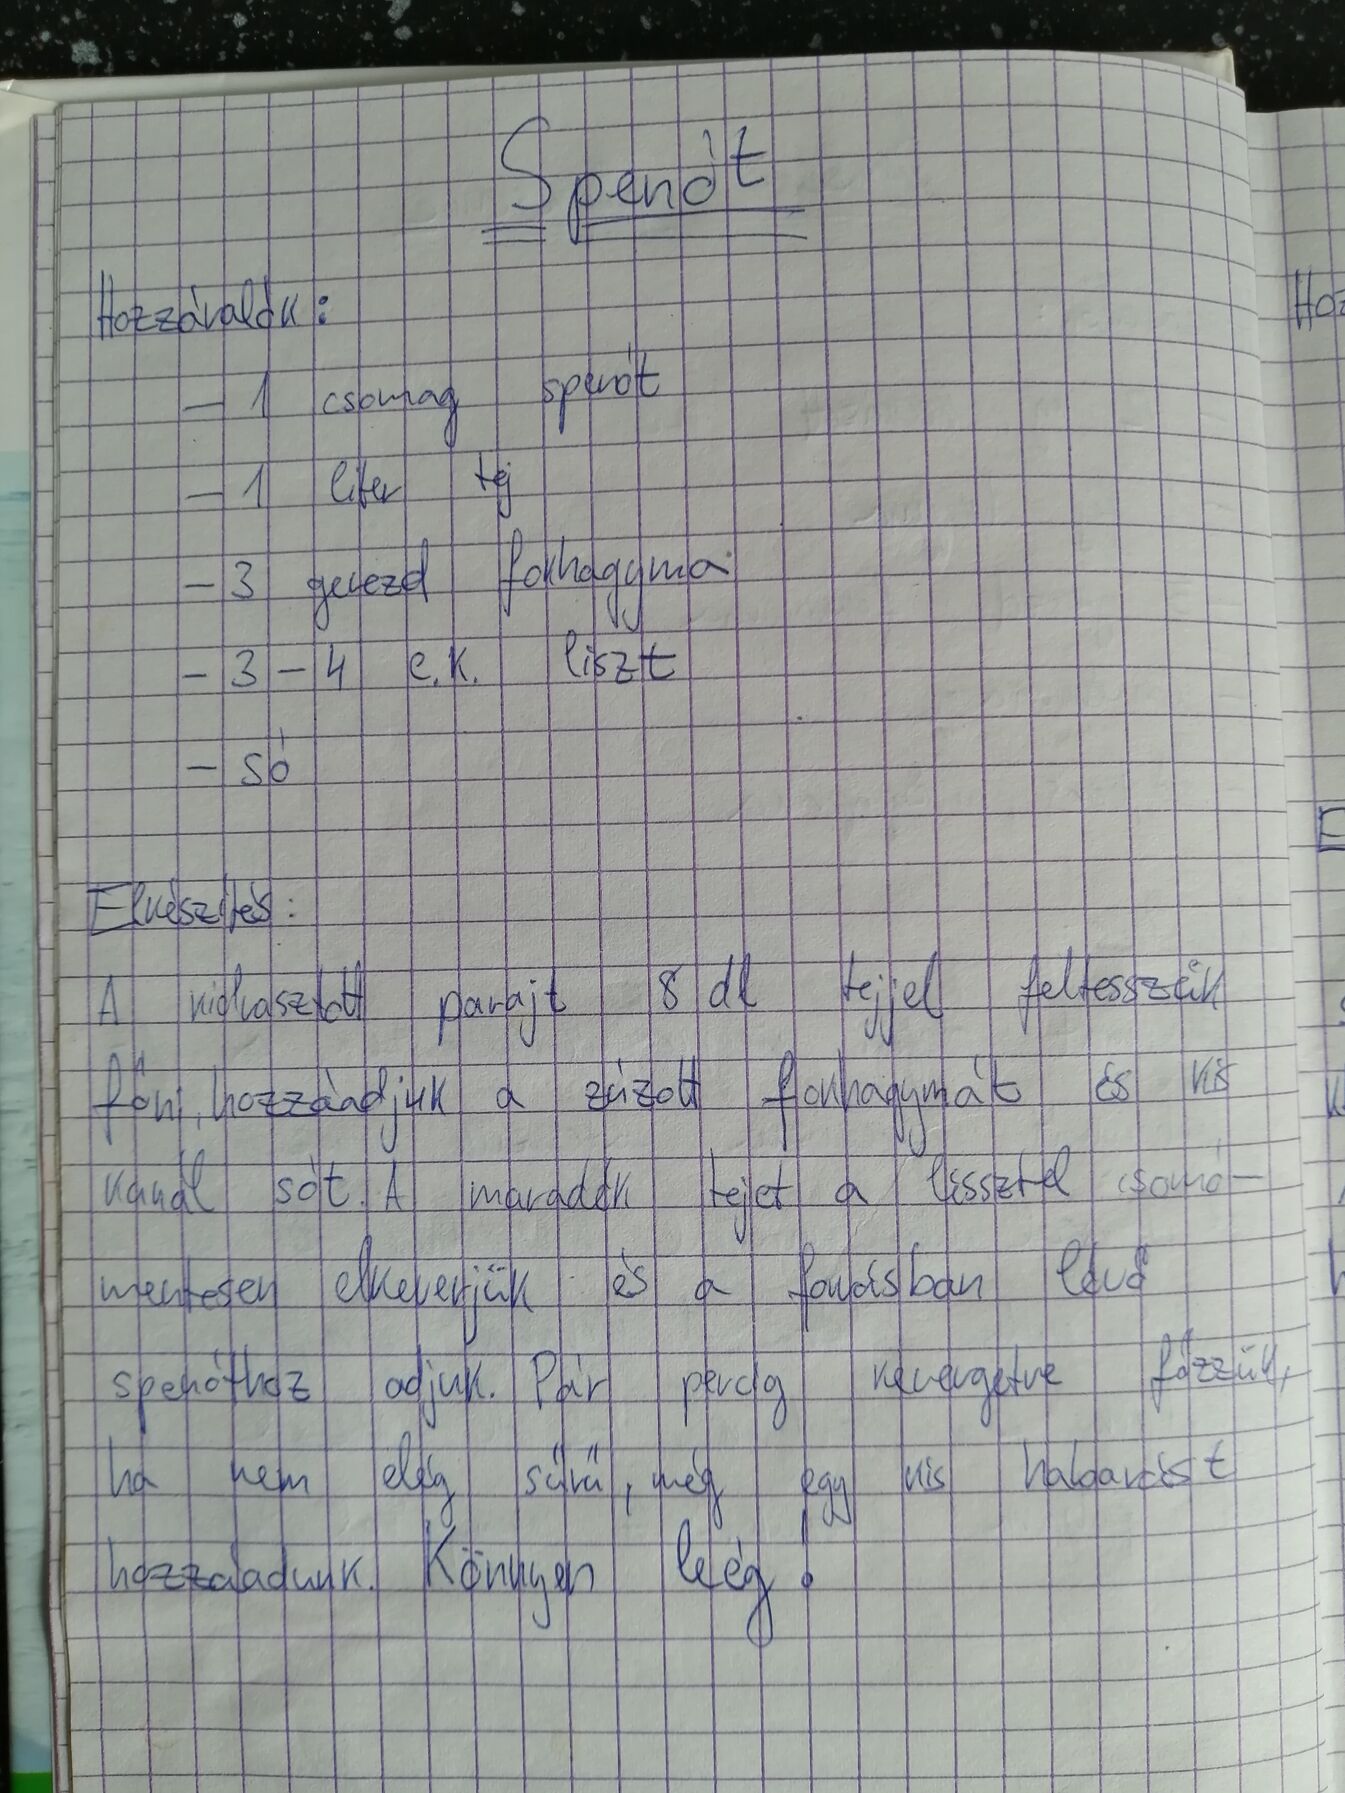 Spenót
Hozzávalók:
- 1 csomag spenót
- 1 liter tej
- 3 gerezd fokhagyma
- 3 - 4 e.k. liszt
- só
Elkészítés:
A kiolvasztott parajt 8 dl tejjel feltesszük
főni, hozzáadjuk a zúzott fokhagymát és kis
kanál sót. A maradék tejet a lisszttel csomó-
mentesen elkeverjük és a forrásban lévő
spenóthoz adjuk. Pár percig kevergetve főzzük,
ha nem elég sűrű, még egy kis habarást
hozzáadunk. Könnyen leég!
Hoz